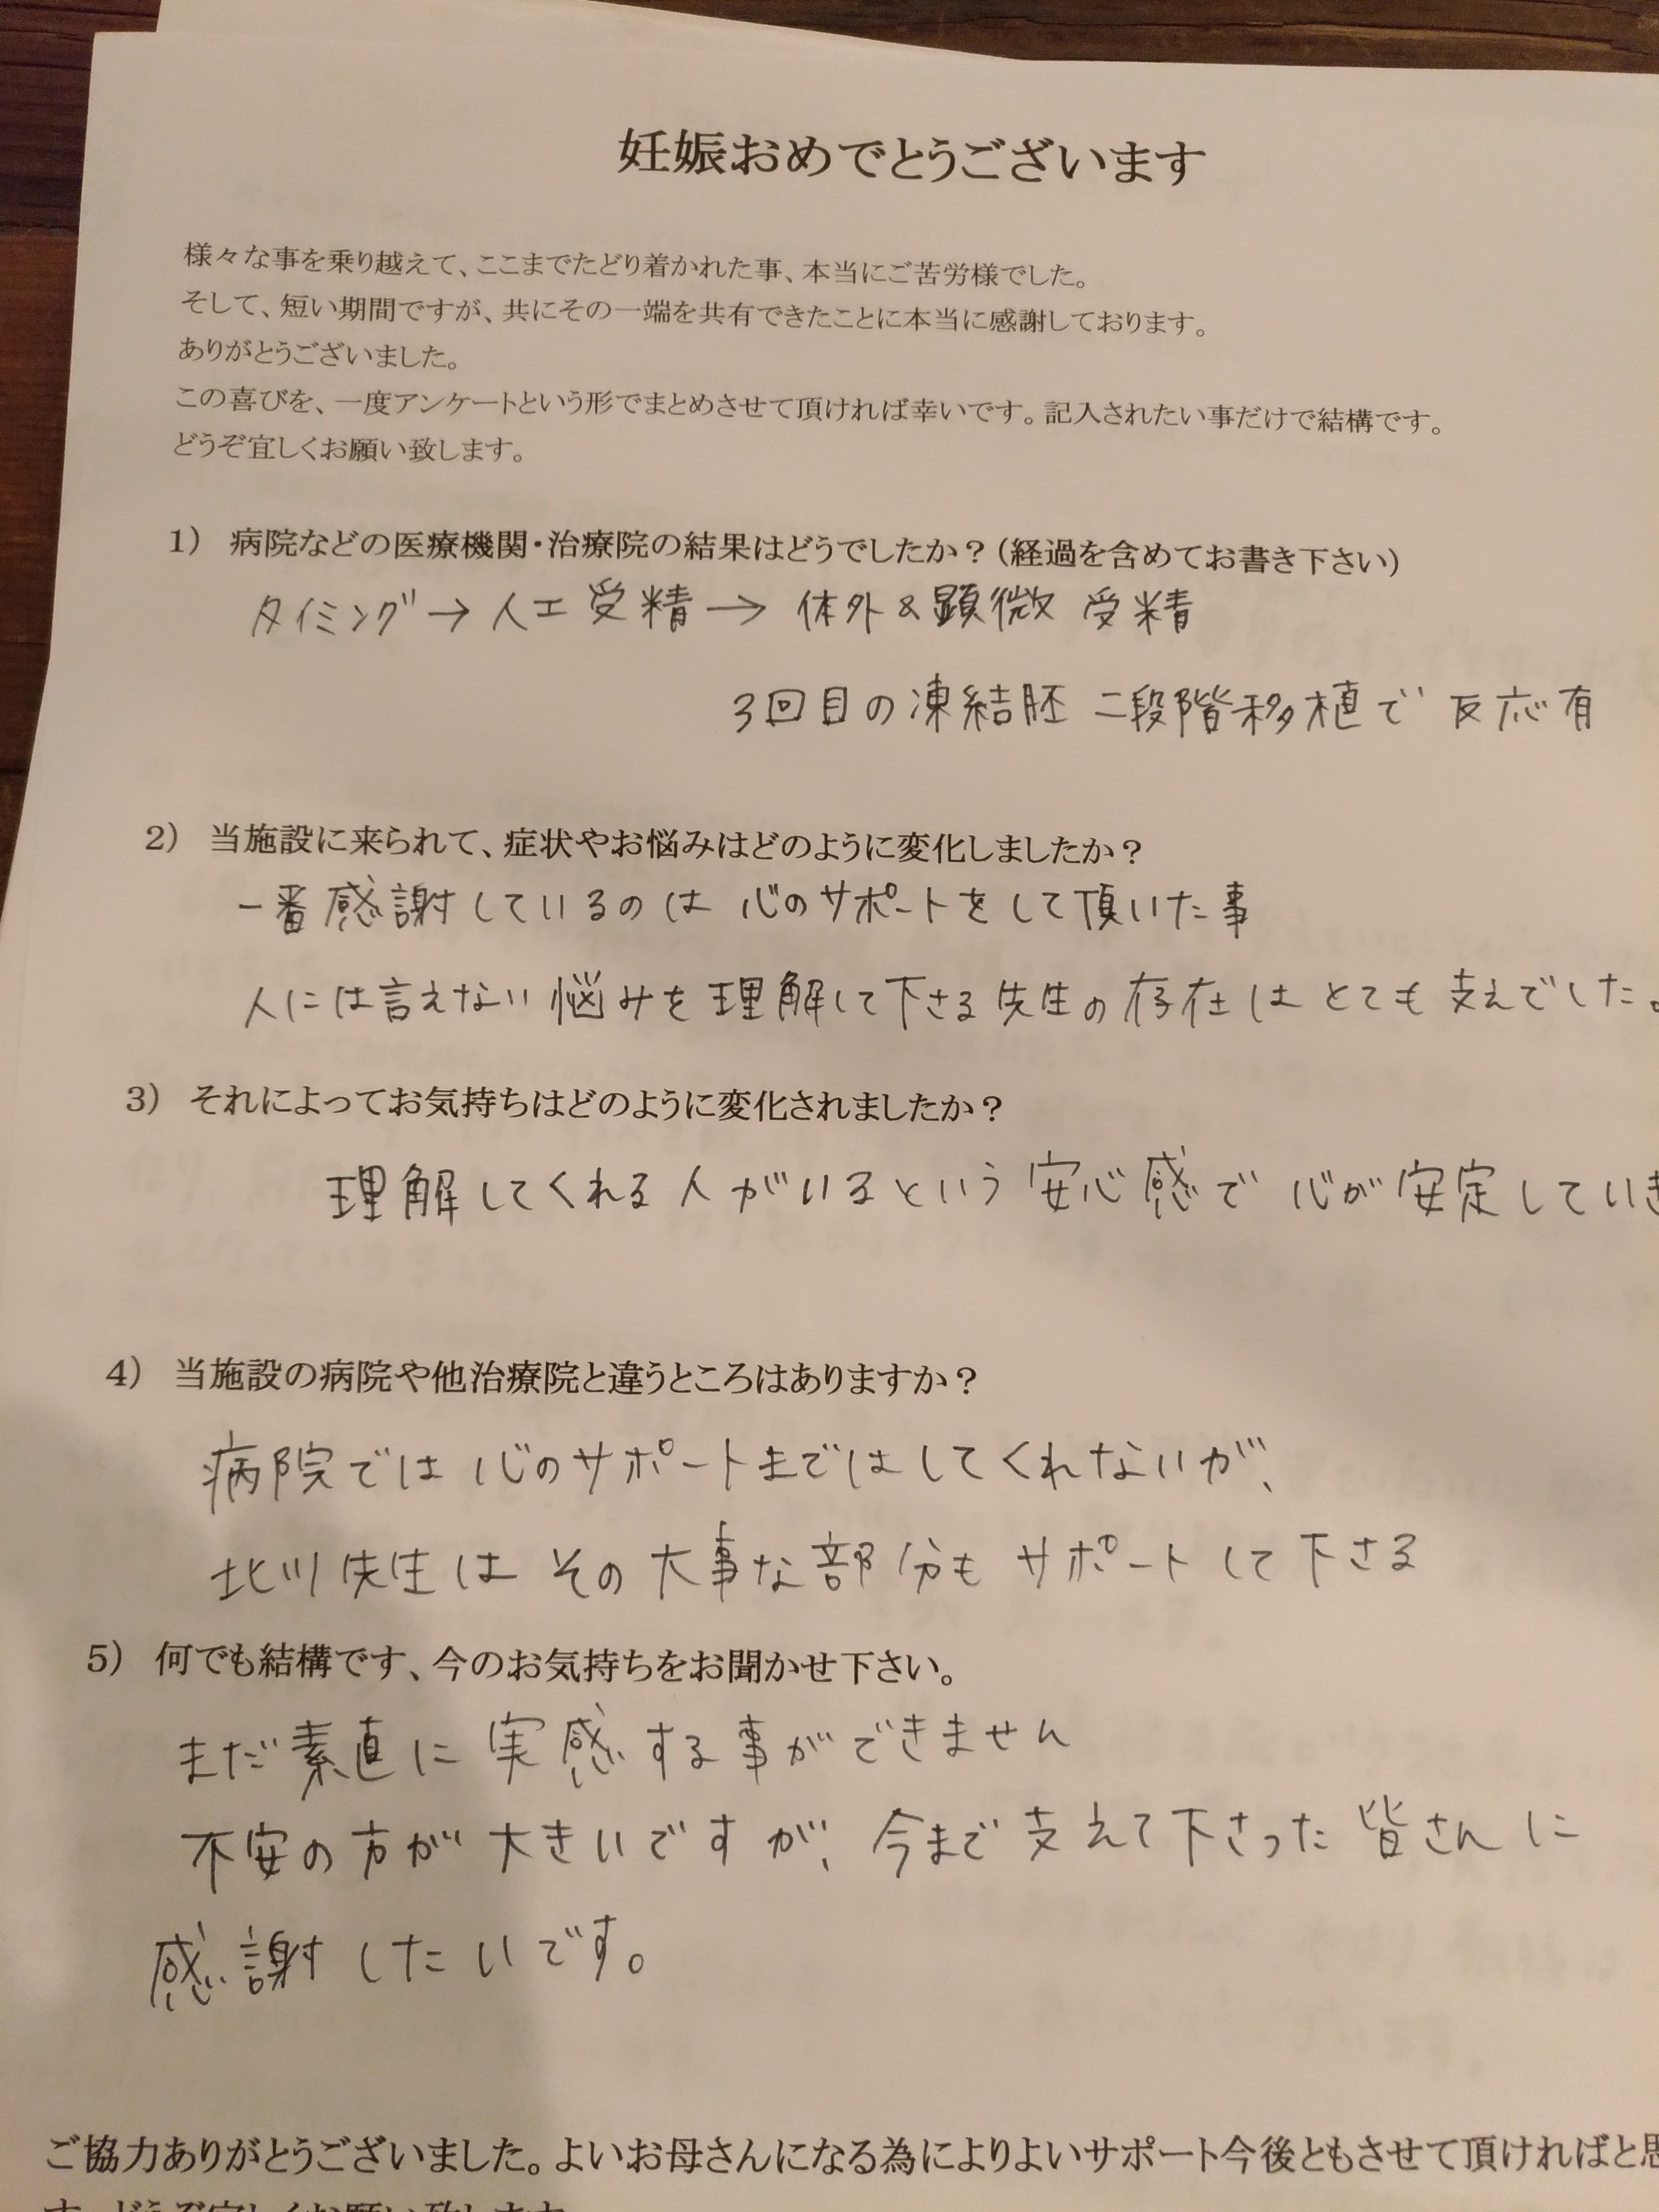 妊娠おめでとうございます
様々な事を乗り越えて、ここまでたどり着かれた事、本当にご苦労様でした。
そして、短い期間ですが、共にその一端を共有できたことに本当に感謝しております。
ありがとうございました。
この喜びを、一度アンケートという形でまとめさせて頂ければ幸いです。記入されたい事だけで結構です。
どうぞ宜しくお願い致します。
1) 病院などの医療機関・治療院の結果はどうでしたか？(経過を含めてお書き下さい)
タイミング→人工受精→体外&顕微受精
3回目の凍結胚二段階移植で反応有
2) 当施設に来られて、症状やお悩みはどのように変化しましたか？
一番感謝しているのは心のサポートをして頂いた事
人には言えない悩みを理解して下さる先生の存在はとても支えでした。
3) それによってお気持ちはどのように変化されましたか？
理解してくれる人がいるという安心感で心が安定していき
4) 当施設の病院や他治療院と違うところはありますか？
病院では心のサポートまではしてくれないが、
北川先生はその大事な部分もサポートして下さる
5) 何でも結構です、今のお気持ちをお聞かせ下さい。
まだ素直に実感する事ができません
不安の方が大きいですが、今まで支えて下さった皆さんに
感謝したいです。
ご協力ありがとうございました。よいお母さんになる為によりよいサポート今後ともさせて頂ければと思
す。どうぞ宜しくお願い致します